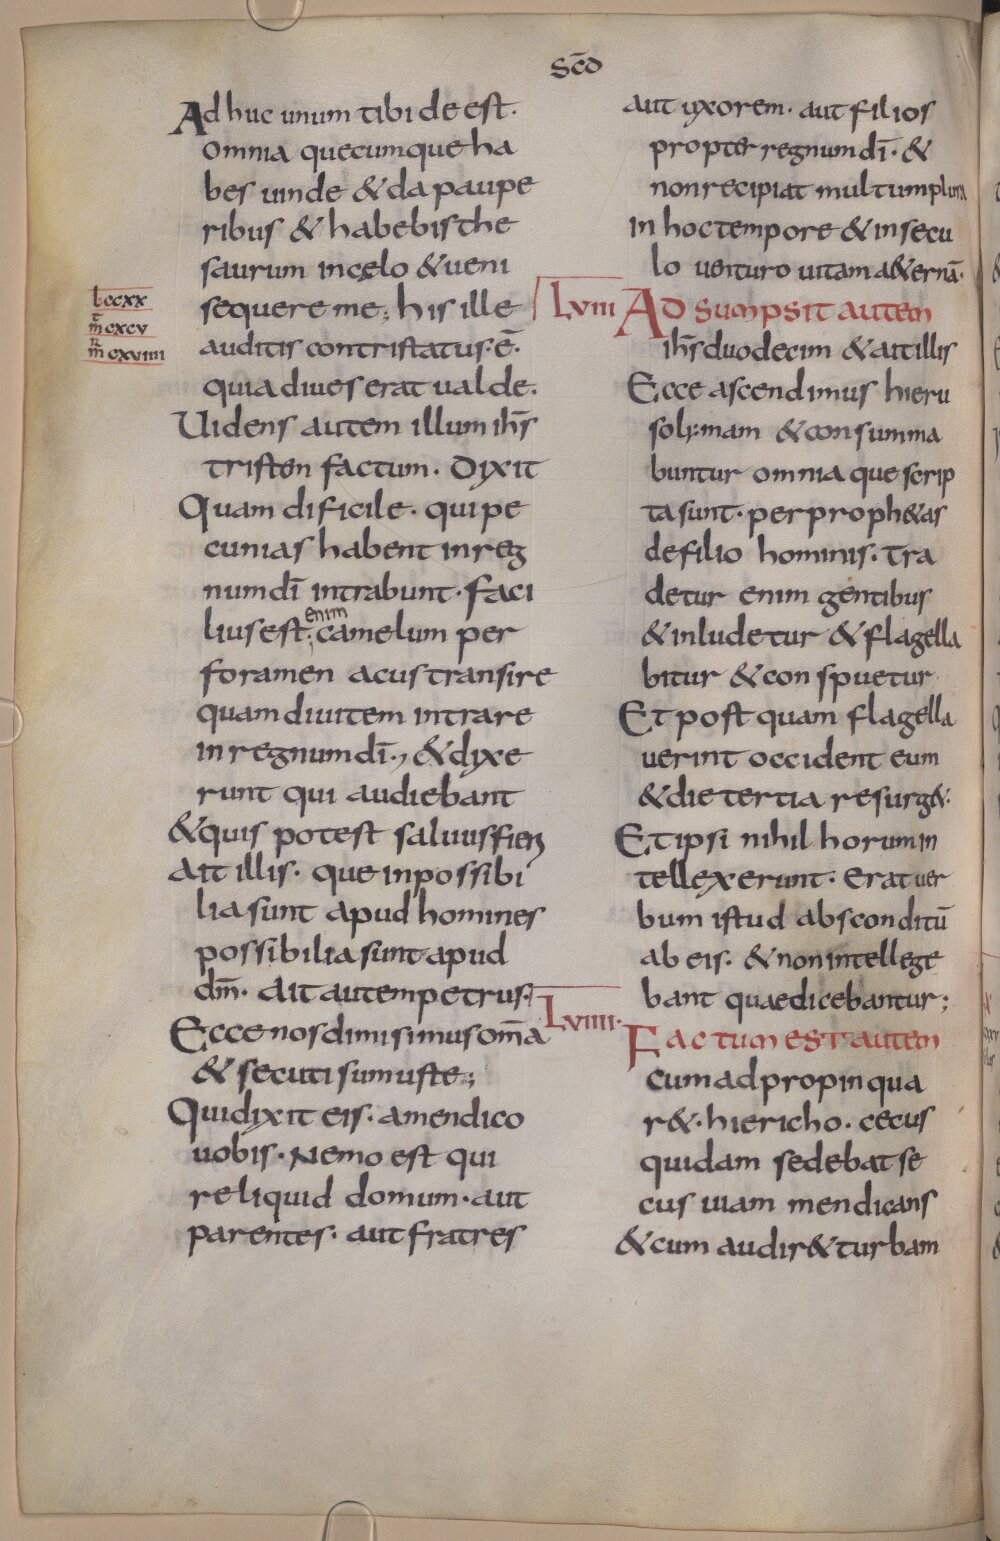 scd̄
Adhuc unum tibi deest·
omnia quecumque ha
bes uinde & da paupe
ribus & habebis the
saurum in cęlo & ueni
lccxx
sequere me; his ille
m̄cxcv
auditis contristatus·ē·
m̄cxviiii
quia diues erat ualde·
Uidens autem illum ih̄s
tristen factum· Dixit
Quam dificile· qui pe
cunias habent in reg
num dī intrabunt· faci
enim
lius est; camelum per
foramen acus transire
quam diuitem intrare
in regnum dī·, & dixe
runt qui audiebant
& quis potest saluus fieri
Ait illis· que inpossibi
lia sunt apud homines
possibilia sunt apud
dm̄· Ait autem petrus·
Ecce nos dimisimus om̄a
& secuti sumus te;
Qui dixit eis· amen dico
uobis· Nemo est qui
reliquid domum· aut
parentes· aut fratres
aut uxorem· aut filios
propter regnum dī· &
non recipiat multum plura
in hoc tempore & in secu
lo uenturo uitam a&ernā·
Lviii Adsumpsit autem
ih̄s duodecim & ait illis
Ecce ascendimus hieru
solymam & consumma
buntur omnia que scrip
ta sunt· per proph&as
de filio hominis· Tra
detur enim gentibus
& inludetur & flagella
bitur & conspuetur
Et postquam flagella
uerint occident eum
& die tertia resurg&·
Et ipsi nihil horum in
tellexerunt· Erat uer
bum istud absconditū
ab eis· & non intellege
bant quae dicebantur;
Lviiii· Factum est autem
cum adpropinqua
r&· hiericho· cecus
quidam sedebat se
cus uiam mendicans
& cum audir& turbam